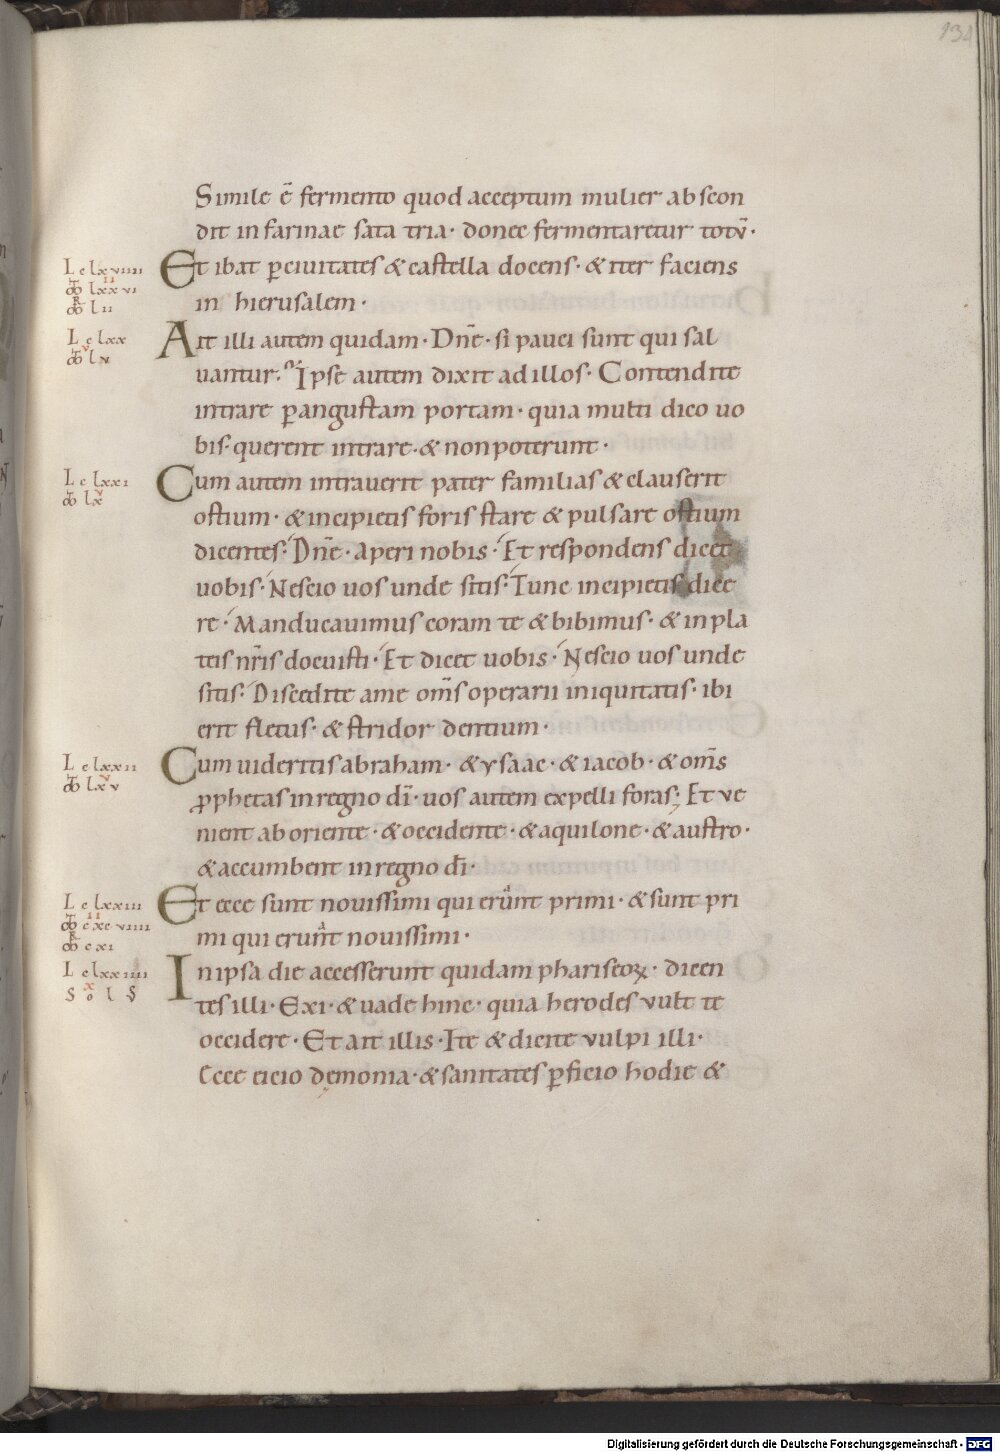 134
Simile ē fermento quod acceptum mulier abscon
dit in farinae sata tria · donec fermentaretur totū ·
L clxviiii
Et ibat p̲ ciuitates & castella docens · & iter faciens
in hierusalem ·
L clxx
Ait illi autem quidam · Dn̄e · si pauci sunt qui sal
uantur · Ipse autem dixit ad illos · Contendite
intrare p̲ angustam portam · quia multi dico uo
bis · querent intrare · & non poterunt ·
L clxxi
Cum autem intrauerit pater familias & clauserit
ostium · & incipietis foris stare & pulsare ostium
dicentes · Dn̄e · aperi nobis · Et respondens dicet
uobis · Nescio uos unde sitis · Tunc incipietis dice
re · Manducauimus coram te & bibimus · & in pla
teis nr̄is docuisti · Et dicet uobis · Nescio uos unde
sitis · Discedite a me om̄s operarii iniquitatis · ibi
erit fletus · & stridor dentium ·
L clxxii
Cum uideritis abraham · & ysaac · & iacob · & om̄s
p̲rophetas in regno dī · uos autem expelli foras ; Et ue
nient ab oriente · & occidente · & aquilone · & austro ·
& accumbent in regno dī ·
L clxxiii
Et ecce sunt nouissimi qui erunt primi · & sunt pri
mi qui erunt nouissimi ·
L clxxiiii
In ipsa die accesserunt quidam phariseoꝝ · dicen
tes illi · Exi · & uade hinc · quia herodes vult te
occidere · Et ait illis · Ite & dicite vulpi illi ·
Ecce eicio demonia · & sanitates p̲ficio hodie &
Digitalisierung gefördert durch die Deutsche Forschungsgemeinschaft - DFG